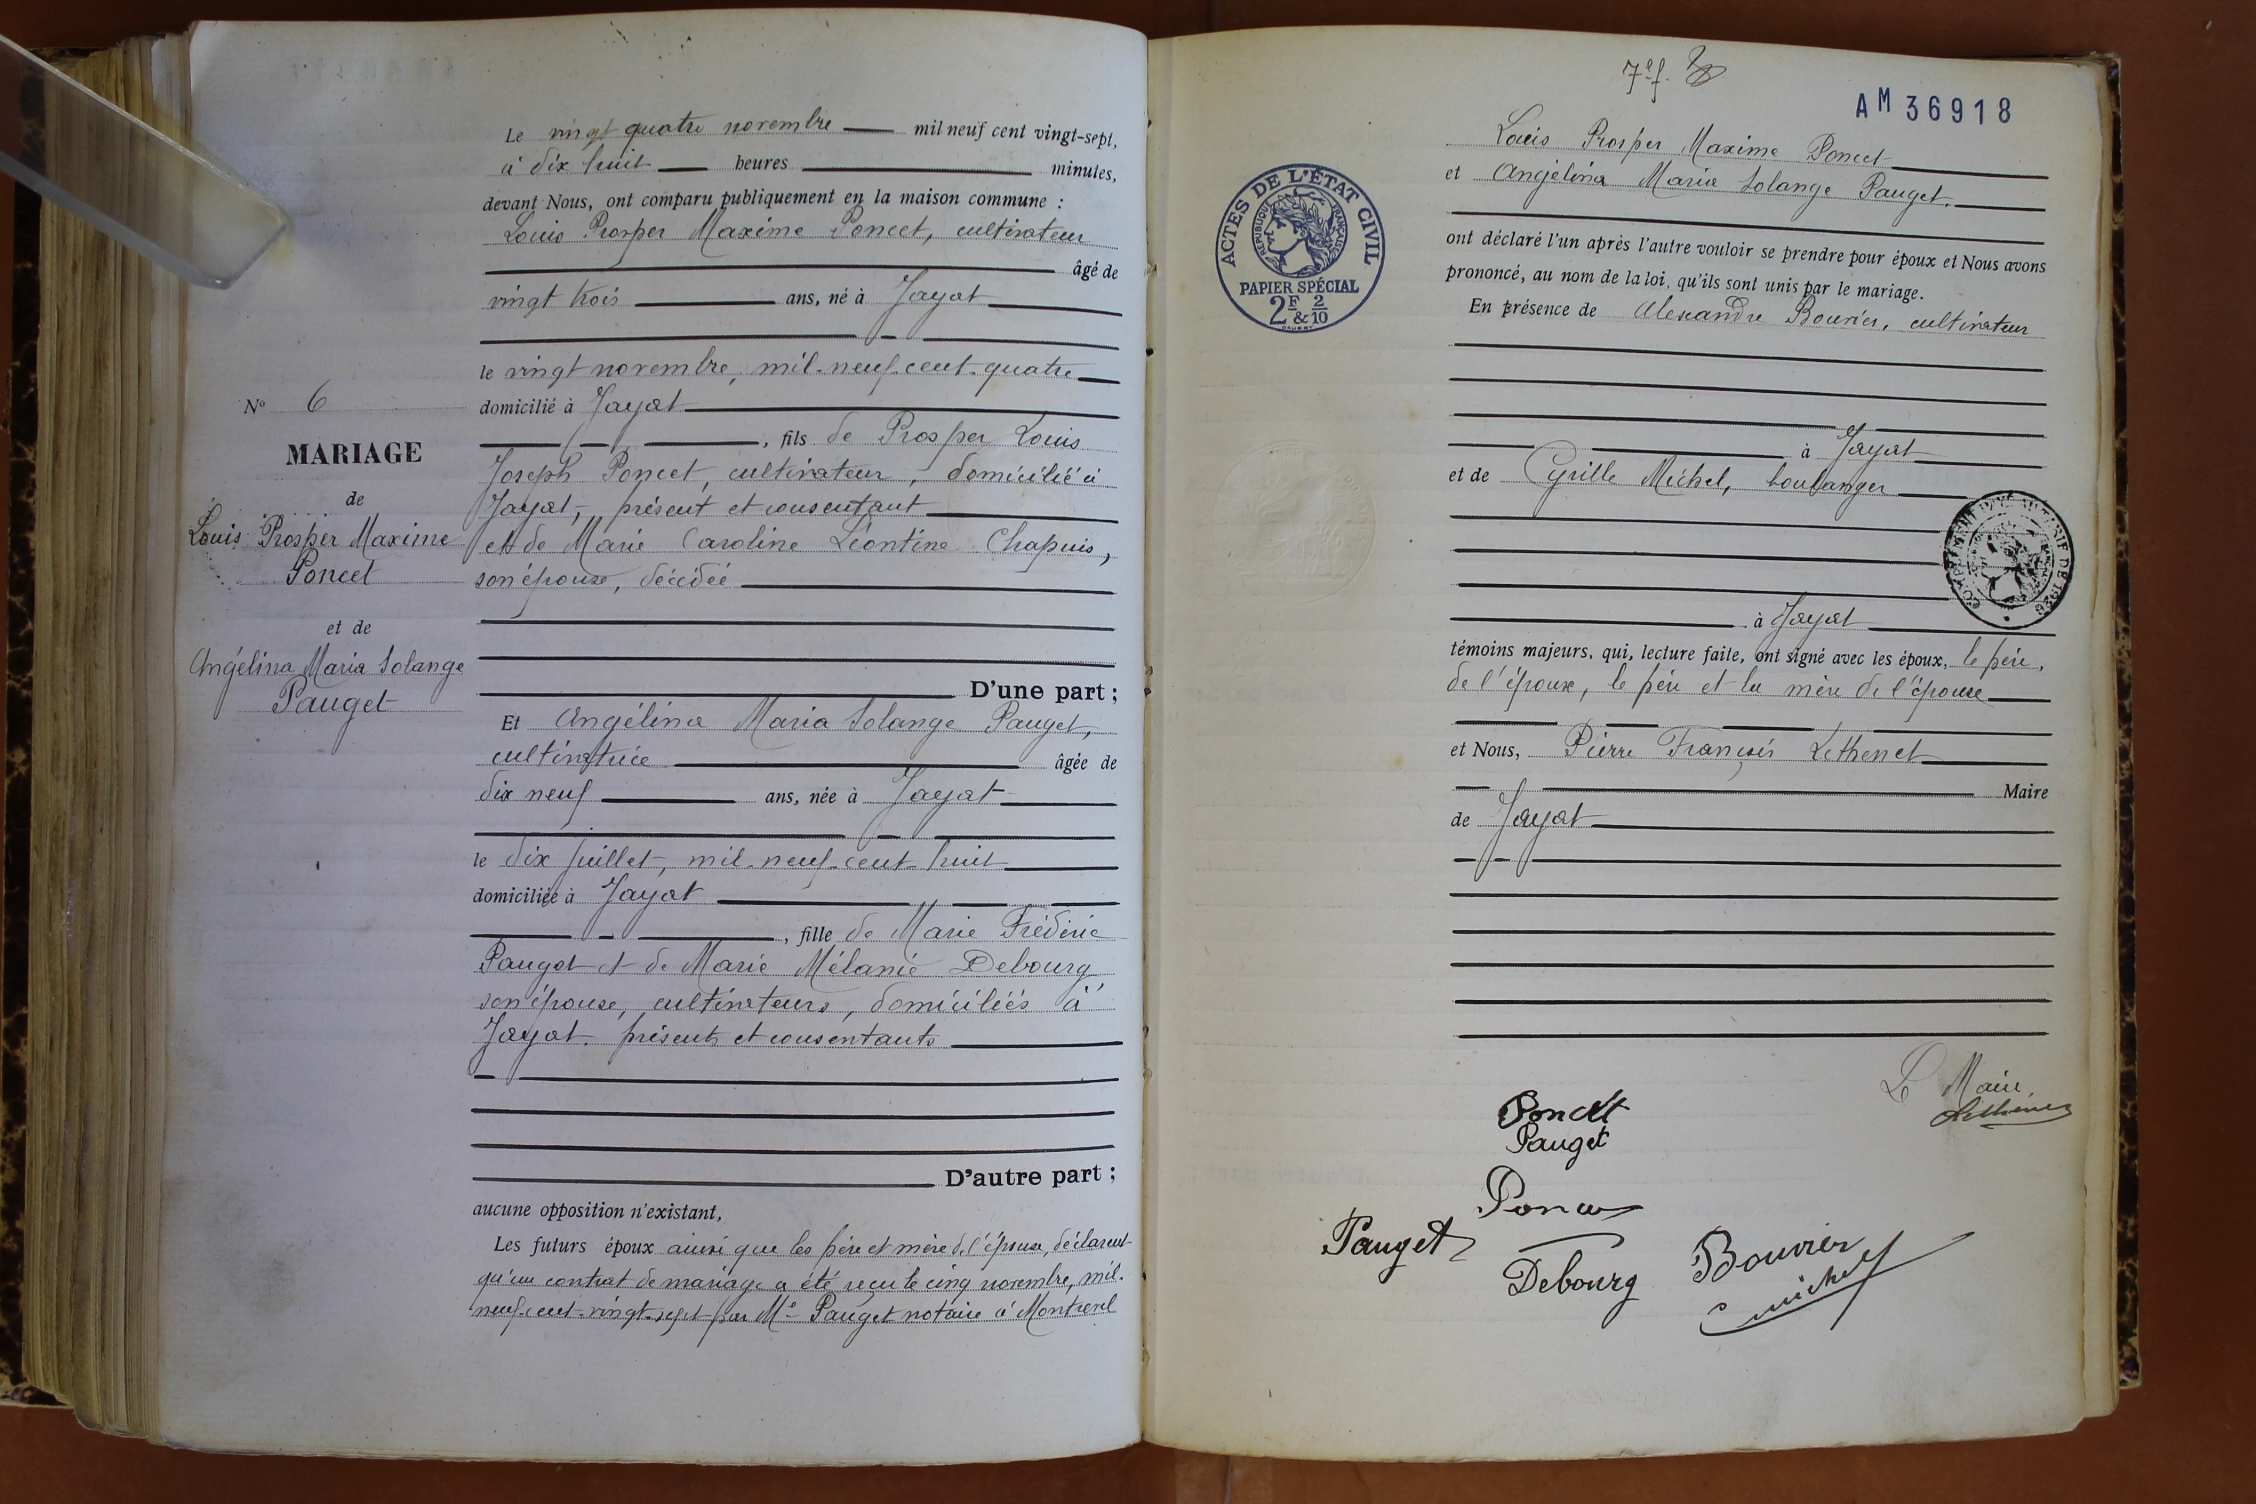 Le vingt quatre novembre mil neuf cent vingt-sept,
à dix huit heures minutes,
devant Nous, ont comparu publiquement en la maison commune :
Louis Prosper Maxime Poncet, cultivateur
âgé de
vingt trois ans, né à Jayat
le vingt novembre, mil-neuf-cent-quatre
domicilié à Jayat
, fils de Prosper Louis
Joseph Poncet, cultivateur, domicilié à
Jayat, présent et consentant
et de Marie Caroline Léontine Chapuis,
son épouse, décédée
D'une part ;
Et Angélina Maria Solange Pauget,
cultivatrice âgée de
dix neuf ans, née à Jayat
le dix juillet, mil-neuf-cent-huit
domiciliée à Jayat
, fille de Marie Frédéric
Pauget et de Marie Mélanie Debourg
son épouse, cultivateurs, domiciliés à
Jayat. présents et consentants
D'autre part ;
aucune opposition n'existant,
Les futurs époux ainsi que les père et mère de l'épouse, déclarent
qu'un contrat de mariage a été reçu le cinq novembre, mil-
neuf-cent-vingt-sept par Me Pauget notaire à Montrevel
N° 6
MARIAGE
de
Louis Prosper Maxime
Poncet
et de
Angélina Maria Solange
Pauget
7e f.
AM 36918
ACTES DE L'ÉTAT CIVIL
RÉPUBLIQUE FRANÇAISE
PAPIER SPÉCIAL
2F & 2/10
Louis Prosper Maxime Poncet
et Angélina Maria Solange Pauget.
ont déclaré l'un après l'autre vouloir se prendre pour époux et Nous avons
prononcé, au nom de la loi, qu'ils sont unis par le mariage.
En présence de Alexandre Bouvier, cultivateur
à Jayat
et de Cyrille Michel, boulanger
COMPLÉMENT PAYÉ AU TARIF DE 1926
à Jayat
témoins majeurs, qui, lecture faite, ont signé avec les époux, le père,
de l'époux, le père et la mère de l'épouse
et Nous, Pierre François Léthenet
Maire
de Jayat
Le Maire,
Poncet
Pauget
Poncet
Pauget
Debourg
Bouvier
Michel